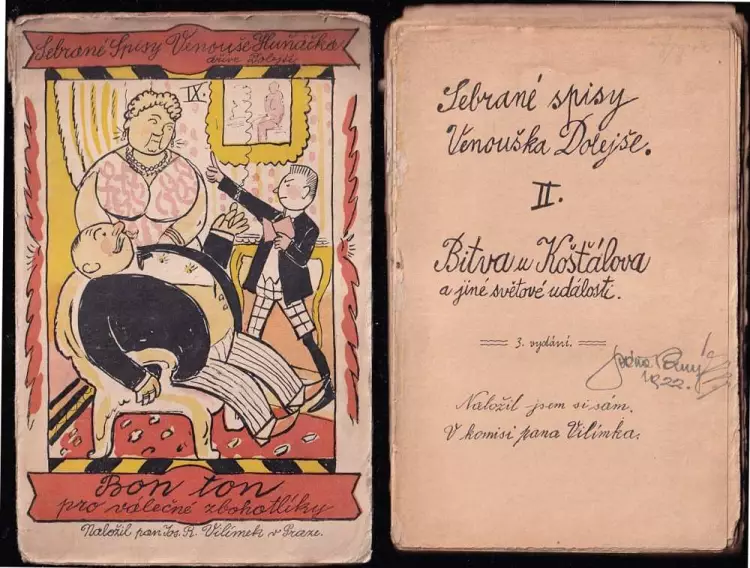 Sebrané Spisy Venouše Huňáčka
dříve Dolejše
IX.
Bon ton
pro válečné zbohatlíky
Naložil pan Jos. R. Vilímek v Praze.
Sebrané spisy
Venouška Dolejše.
II.
Bitva u Košťálova
a jiné světové události.
3. vydání.
1922.
Naložil jsem si sám.
V komisi pana Vilímka.